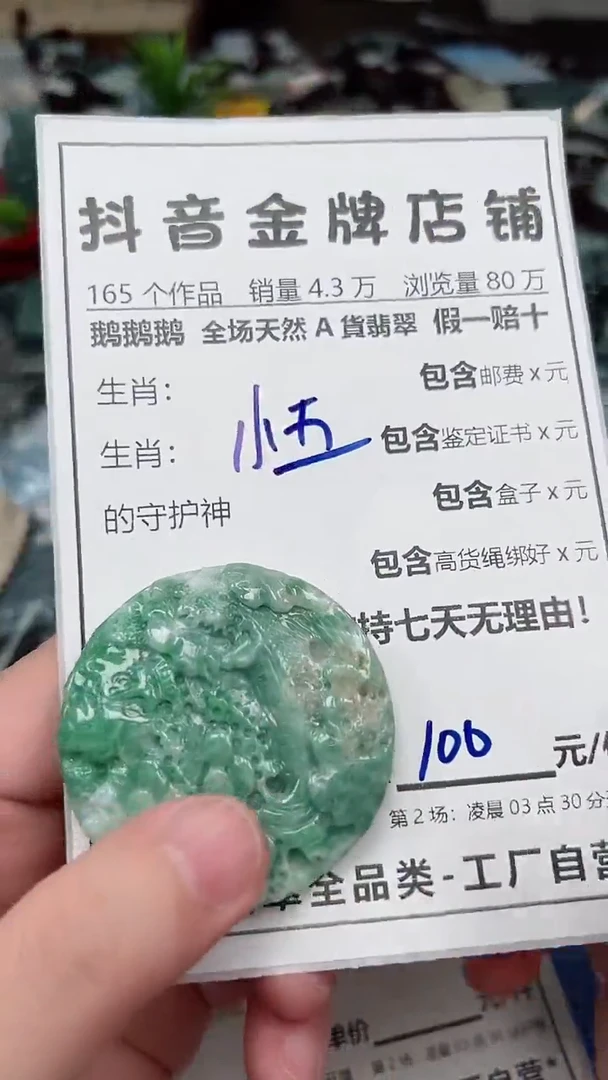 抖音金牌店铺
165个作品 销量4.3万 浏览量80万
鹅鹅鹅 全场天然A貨翡翠 假一赔十
生肖： 包含邮费x元
生肖： 小五 包含鉴定证书x元
的守护神 包含盒子x元
包含高货绳绑好x元
持七天无理由！
100 元/
第2场：凌晨03点30分
全品类-工厂自营
单价
自营